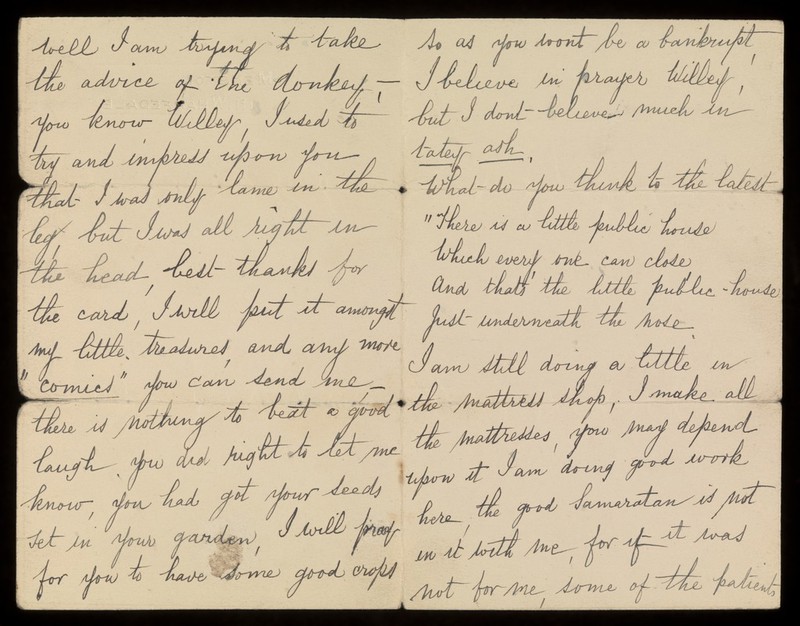 well I am trying to take
the advice of the donkey,—
you know Willey, I used to
try and impress upon you
that I was only lame in the
leg, but I was all right in
the head, best thanks for
the card, I will put it amongst
my little treasures, and any more
"comics" you can send me,
there is nothing to beat a good
laugh. you did right to let me
know, you had got your seeds
set in your garden, I will pray
for you to have some good crops
so as you wont be a bankrupt,
I believe in prayer Willey,
but I dont believe much in
tatey ash.
What do you think to the latest
"There is a little public house
Which every one can close,
And that's the little public-house
Just underneath the nose.
I am still doing a little in
the mattress shop, I make all
the mattresses, you may depend
upon it I am doing good work
here, the good Samaratan is not
in it with me, for if it was
not for me, some of the patients